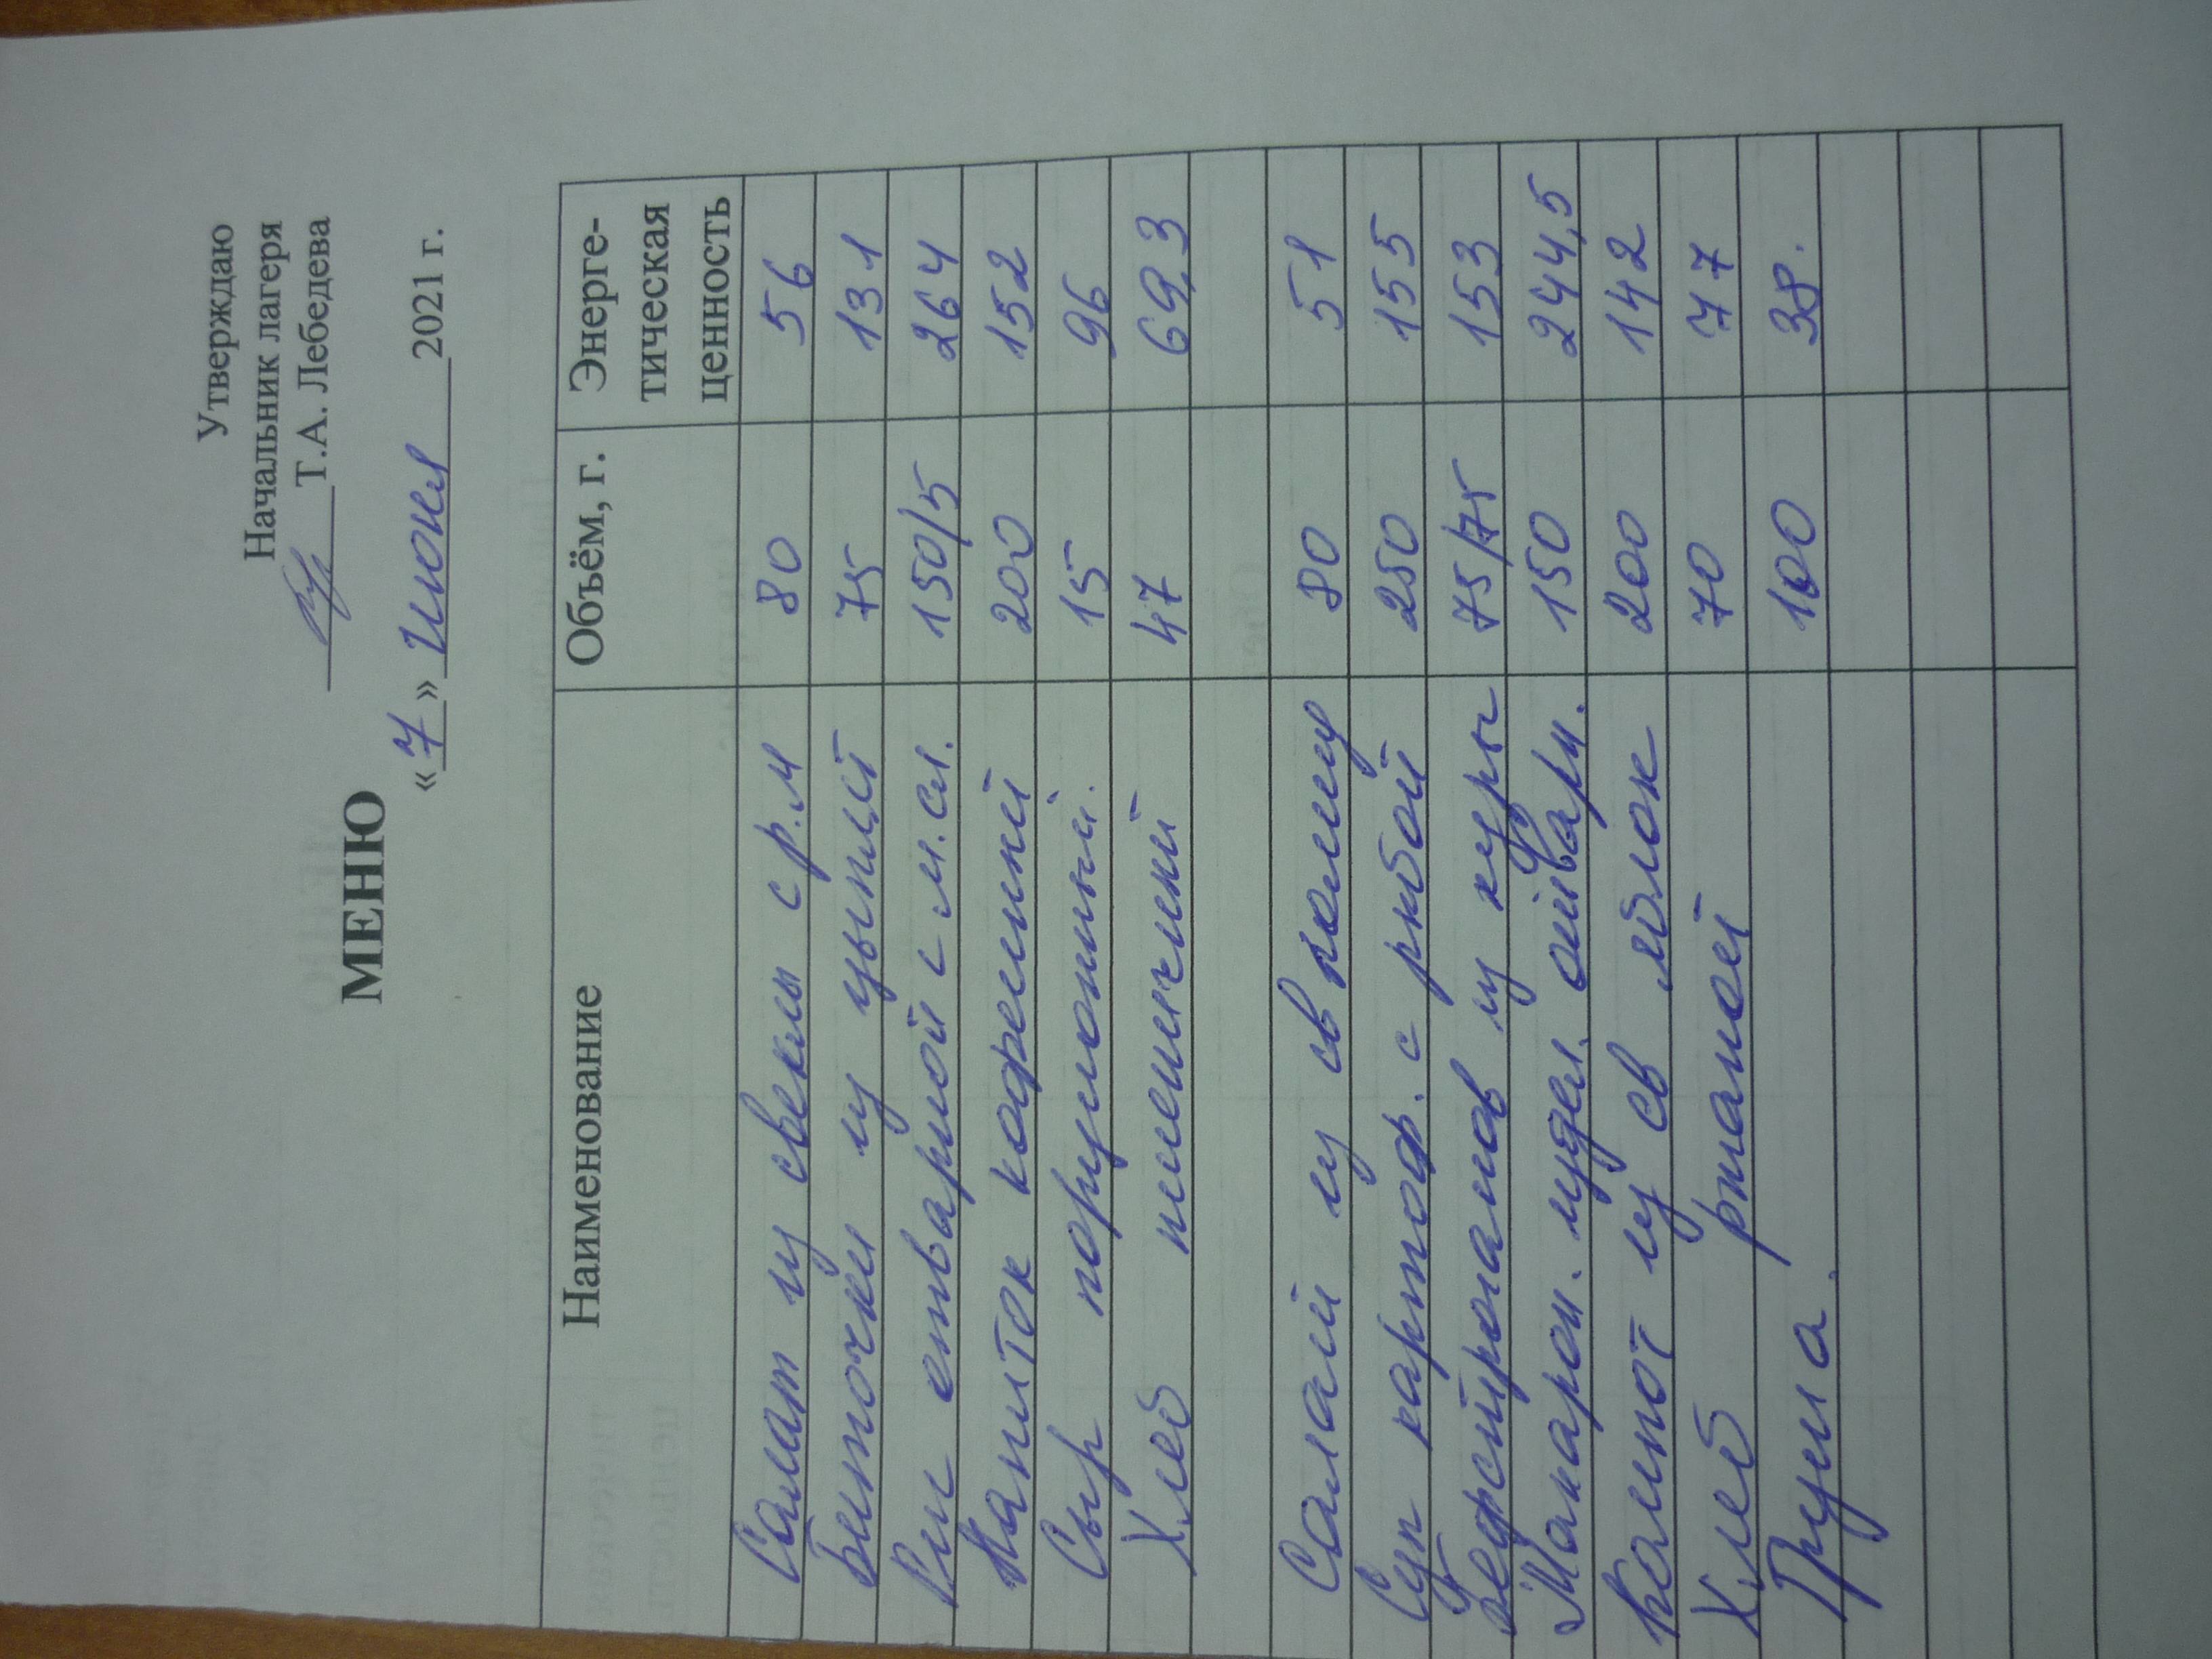 Утверждаю
Начальник лагеря
Т.А. Лебедева
МЕНЮ
«7» Июня 2021 г.
Наименование Объём, г. Энерге-
тическая
ценность
Салат из свеклы с р.м 80 56
Биточки из птицы 75 131
Рис отварной с м.сл. 150/5 264
Напиток кофейный 200 152
Сыр порционный. 15 96
Хлеб пшеничный 47 69,3
Салат из св 80 51
Суп картоф. с рыбой 250 155
Бефстроганов из куры 75/75 153
Макарон. издел. отварн. 150 244,5
Компот из св яблок 200 142
Хлеб ржаной 70 77
Груша. 100 38.